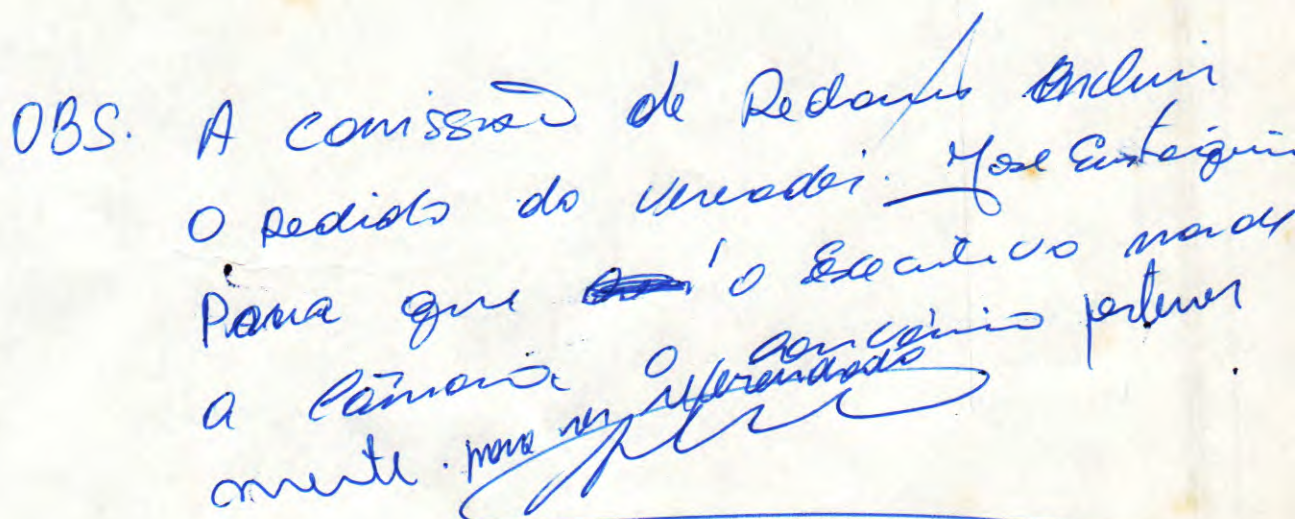 OBS. A comissão de Redação incluir
O pedido do vereador. José Eustáquio
Para que o Executivo mande
a Câmara o convênio poster
mente. para ser referendado